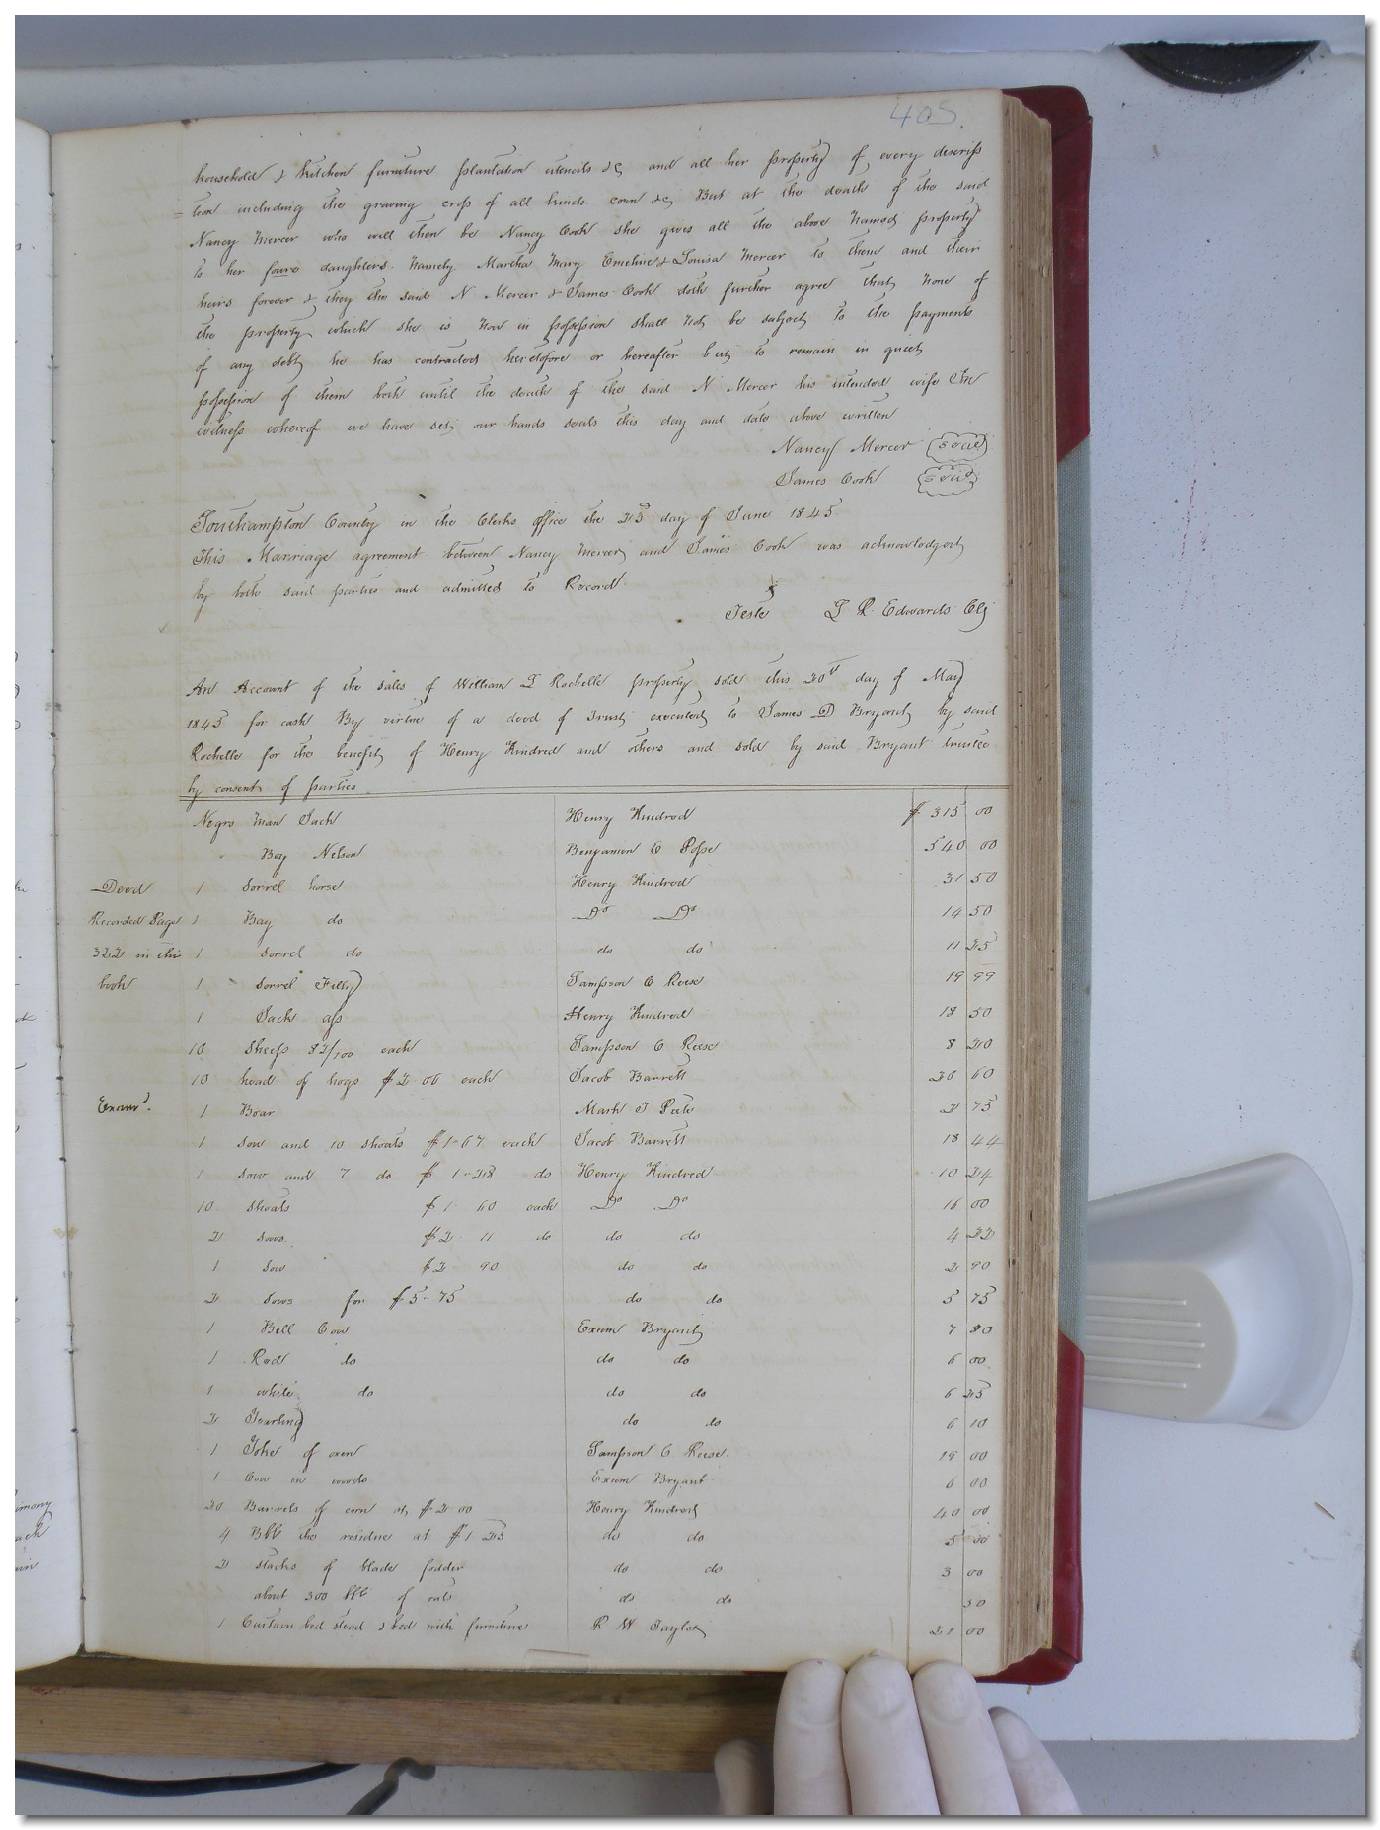 405.
household & kitchen furniture plantation utensils &c and all her property of every descrip
= tion including the growing crop of all kinds corn &c But at the death of the said
Nancy Mercer who will then be Nancy Cook she gives all the above named property
to her foure daughters Namely Martha Mary Emeline & Louisa Mercer to them and their
heirs forever & they the said N Mercer & James Cook doth further agree that None of
the property which she is Now in possession shall Not be subject to the payments
of any debts he has contracted heretofore or hereafter but to remain in quiet
possession of them both until the death of the said N Mercer his intended wife In
witness whereof we have set our hands seals this day and date above written
Nancy Mercer seal
James Cook seal
Southampton County in the Clerks office the 23 day of June 1845
This Marriage agreement between Nancy Mercer and James Cook was acknowledged
by both said parties and admitted to Record
Teste L R Edwards Clk
An Account of the sales of William L Rochelle property sold this 20th day of May
1845 for cash By virtue of a deed of Trust executed to James D Bryant by said
Rochelle for the benefit of Henry Kindred and others and sold by said Bryant trustee
by consent of parties
Negro Man Jack Henry Kindred $ 315 00
" Boy Nelson Benjamin C Pope 540 00
Deed 1 Sorrel horse Henry Kindred 31 50
Recorded Page 1 Bay do Do Do 14 50
322 in this 1 Sorrel do do do 11 25
book 1 Sorrel Filly Sampson C Reese 19 99
1 Jack ass Henry Kindred 18 50
10 Sheep 82/100 each Sampson C Reese 8 20
10 head of hogs $2.06 each Jacob Barrett 20 60
Examd. 1 Boar Mark J Pate 2 75
1 Sow and 10 shoats $1-67 each Jacob Barrett 18 44
1 Sow and 7 do $1-28 do Henry Kindred 10 24
10 Shoats $1 60 each Do Do 16 00
2 Sows $2 11 do do do 4 22
1 Sow $2 90 do do 2 90
2 Sows for $5-75 do do 5 75
1 Bell Cow Exum Bryant 7 80
1 Red do do do 6 00
1 white do do do 6 25
2 Yearling do do 6 10
1 Yoke of oxen Sampson C Reese 19 00
1 Cow in woods Exum Bryant 6 00
20 Barrels of corn at $2 00 Henry Kindred 40 00
4 Bbl the residue at $1 25 do do 5 00
2 stacks of blade fodder do do 3 00
about 300 lbs of oats do do 50
1 Curtain bed stead & bed with furniture R W Taylor 21 00